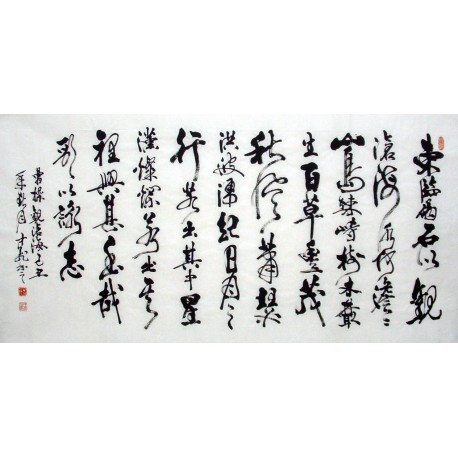 東臨碣石以觀
滄海水何澹々
山島竦峙樹木叢
生百草豐茂
秋風蕭瑟
洪波湧起日月之
行若出其中星
漢燦爛若出其
裡幸甚至哉
歌以詠志
曹操觀滄海己丑
年秋月